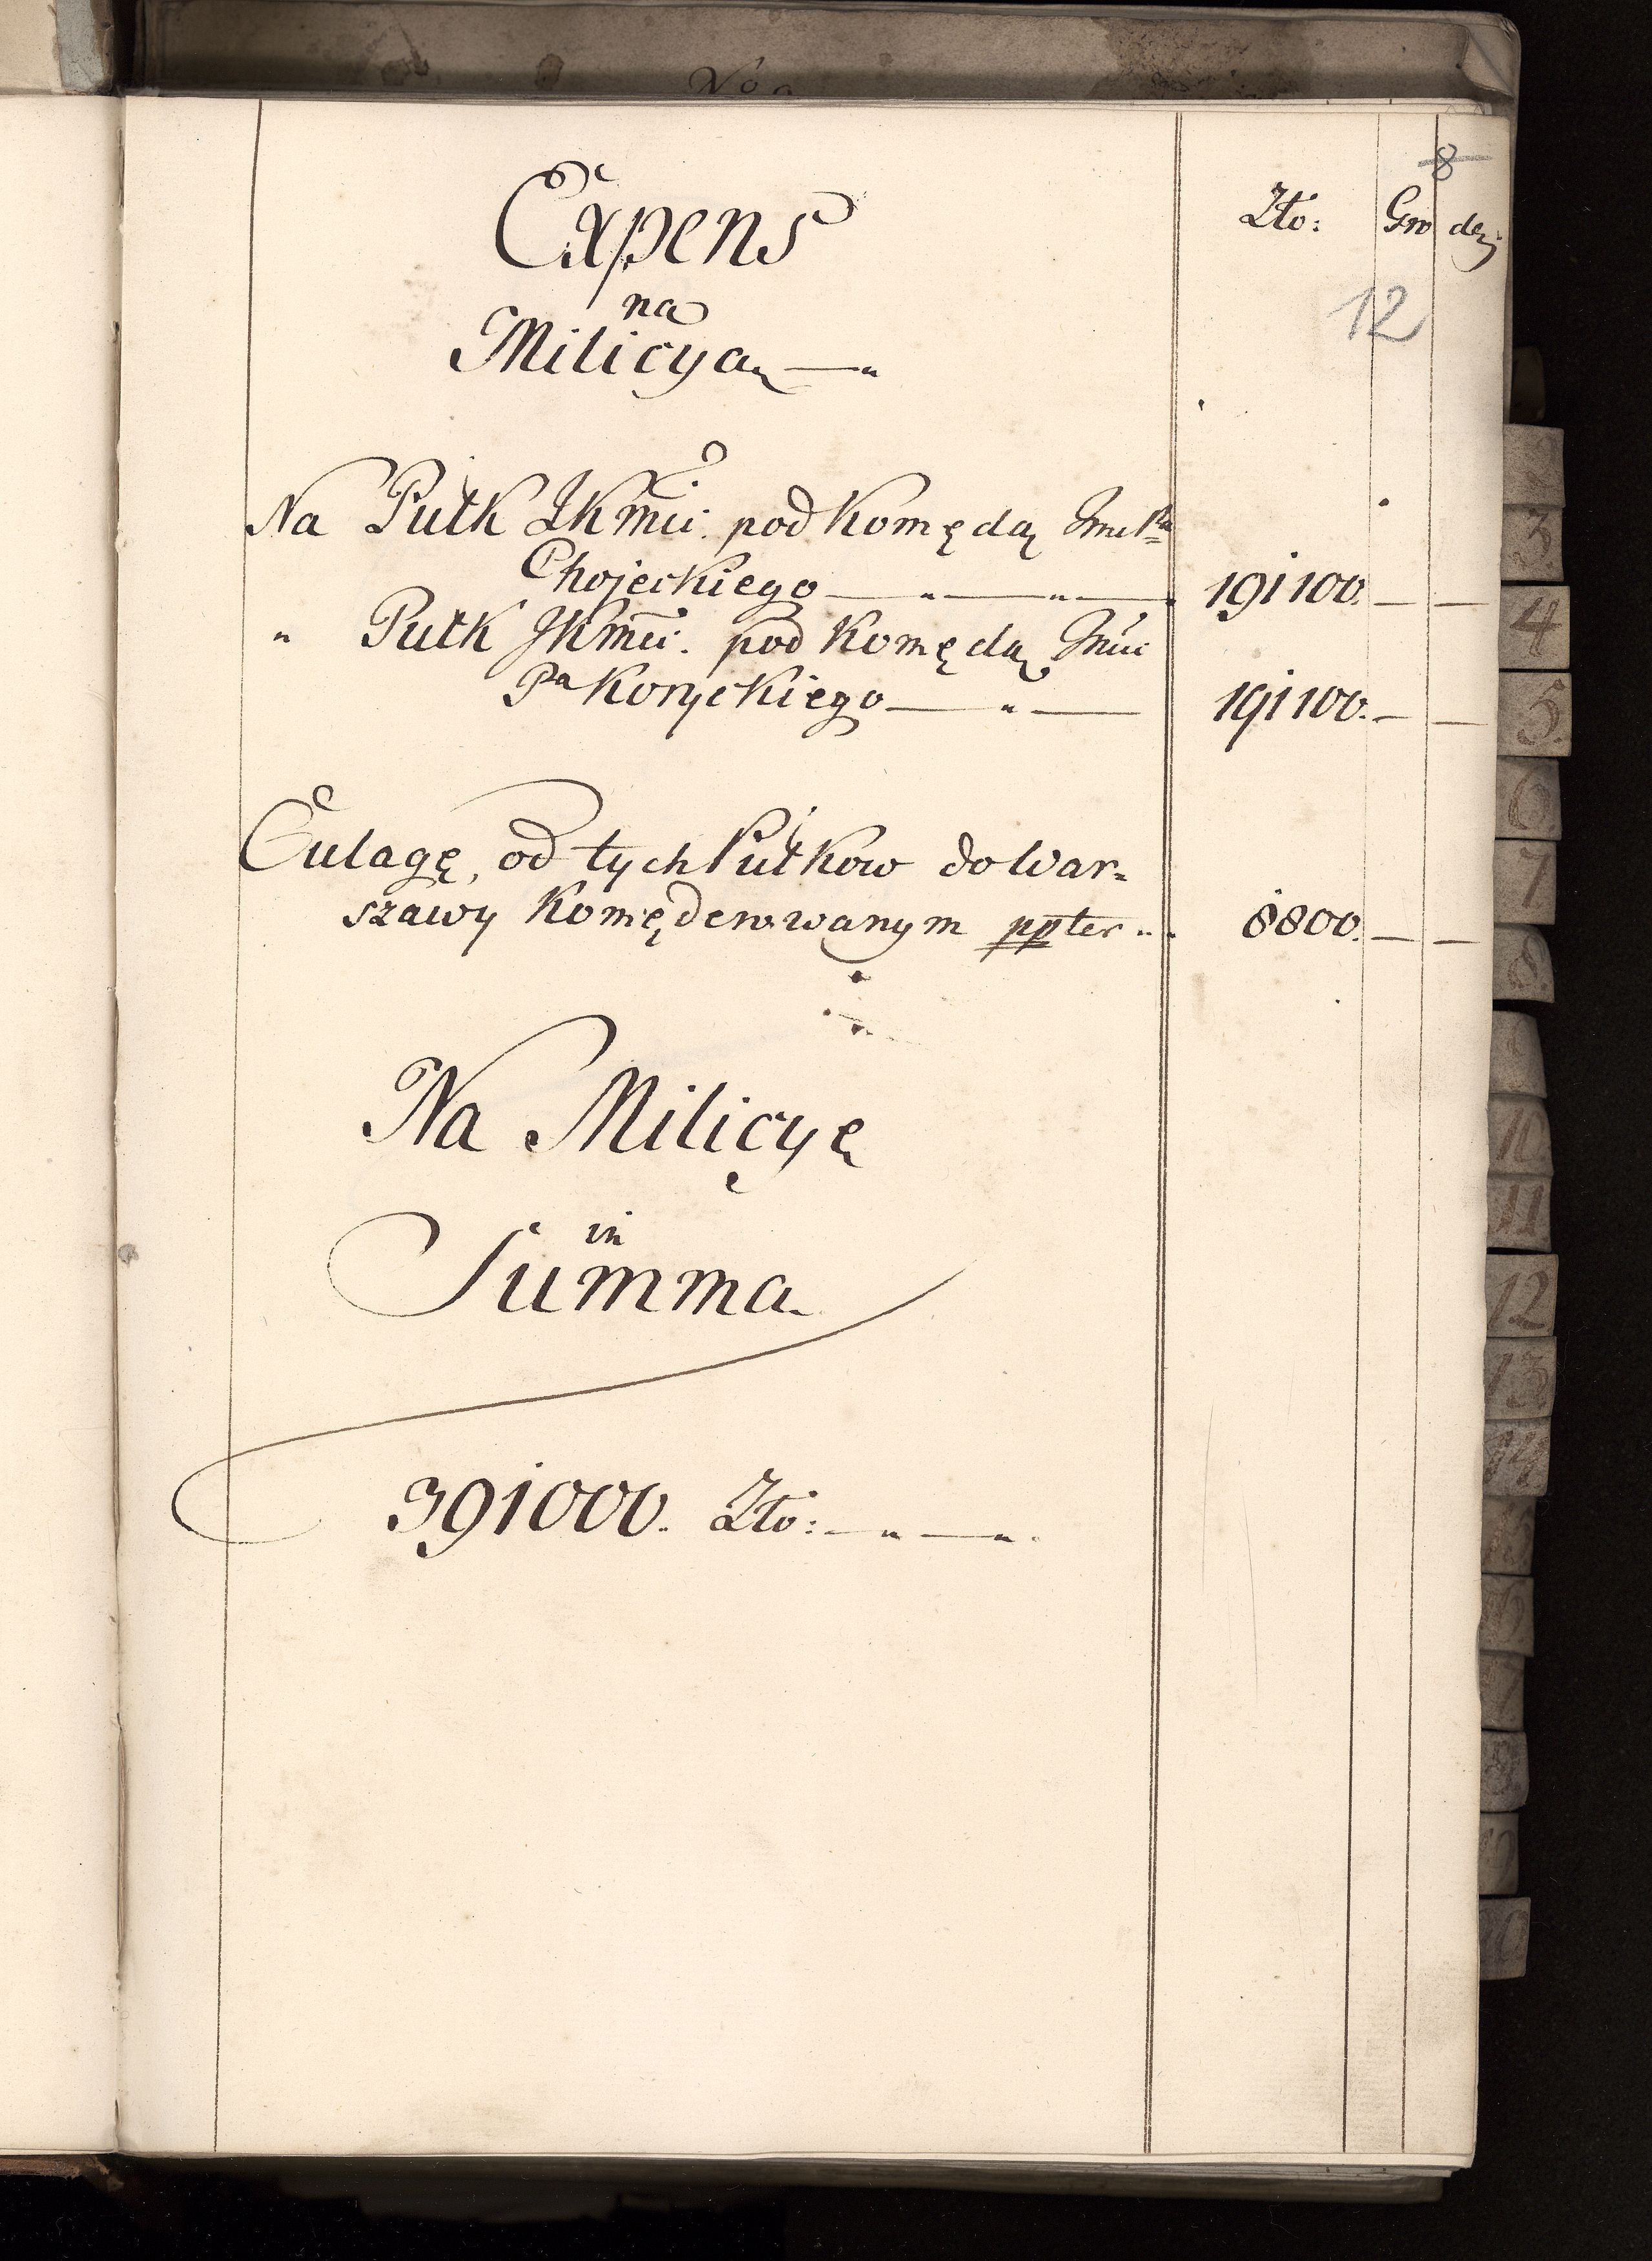 8
Expens Zło: Gro den:
na
12
Milicyą
Na Pułk JKmci. pod Komędą Jmci Pa
Chojeckiego 191100.
" Pułk JKmci. pod Komędą Jmci
Pa Koryckiego 191100.
Culagę, od tych Pułkow do War=
szawy Komęderowanym ppter 8800.
Na Milicyę
in
Summa
391000. Zło:
3
4
5.
6
7
8.
10
11
12
13
14